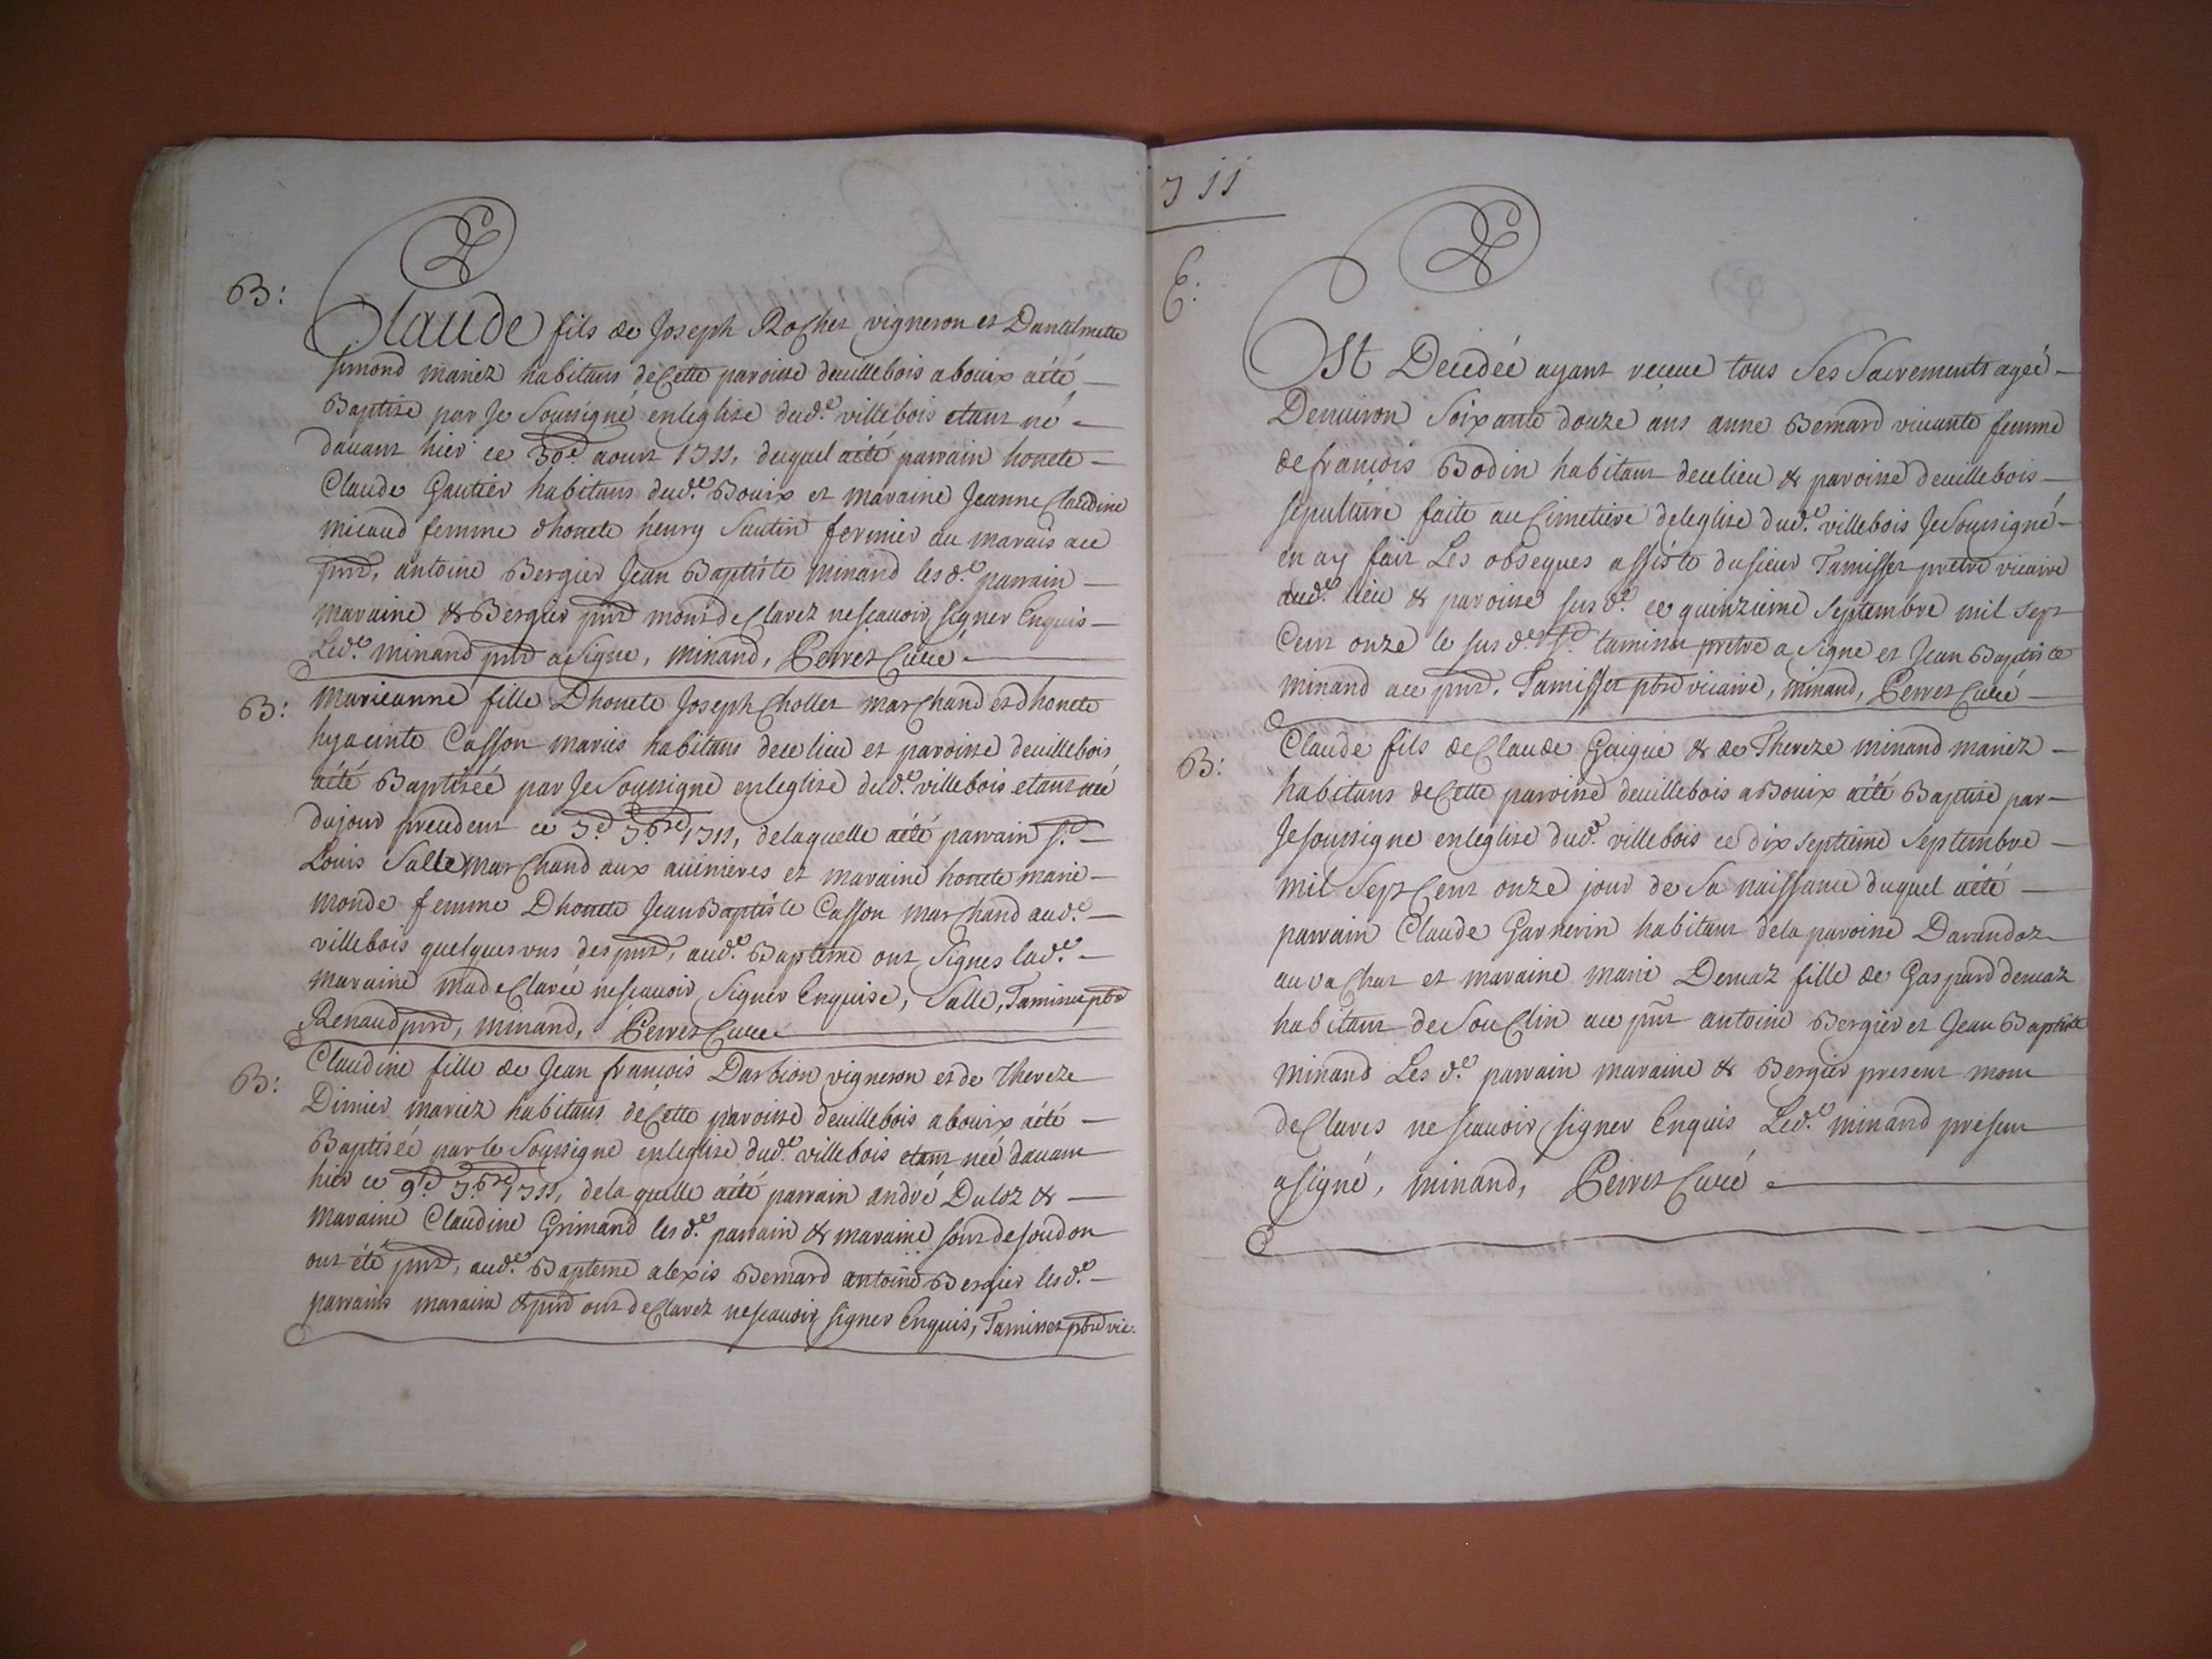 B:
Claude fils de Joseph Rochet vigneron et Dantelmette
simond mariez habitans de Cette paroisse deuillebois a bouix aété
Baptise par Je Soussigné enleglise dud.e villebois etant né
dauant hier ce 30e aoust 1711, duquel aété parrain honete
Claude Gautier habitans dud.e Bouix et maraine Jeanne Claudine
micaud femme dhonete henry Sautin fermier au marais aue
pnt, antoine Bergier Jean Baptiste minand lesd.e parrain
maraine & Bergier pnt mont de Clarez nescauoir signer Enquis
Led.e minand pnt a Signe, minand, Perret Curé
B:
marieanne fille Dhonete Joseph Chollet marchand et dhonete
hyacinte Casson mariés habitans de ce lieu et paroisse deuillebois
aété Baptisée par Je Soussigne enleglise dud.e villebois etant née
dujour precedent ce 7e 7bre 1711, delaquelle aété parrain S.r
Louis Salle marchand aux auinieres et maraine honete marie
monde femme Dhonete Jean Baptiste Casson marchand aud.e
villebois quelques vns des pnt, aud.e Baptême ont Signes lad.e
maraine ma de Clarée nescauoir Signer Enquise, Salle, Tamisset pbre
Renaud pnt, minand, Perret Curé
B:
Claudine fille de Jean françois Darbion vigneron et de Thereze
Dimier mariez habitans de Cette paroisse deuillebois a bouix aété
Baptisée par le Soussigne enleglise dud.e villebois etant née dauant
hier ce 9e 7bre 1711, delaquelle aété parrain andré Duloz &
maraine Claudine Grimand lesd.e parrain & maraine sont de soudon
ont été pnt, aud.e Bapteme alexis Bernard antoine Bergier lesd.e
parrains maraine & pnt ont de Clarez nescauoir signer Enquis, Tamisset pbre vic.
711
E:
Est Decedée ayant receue tous Ses Sacrements agée
Denuiron Soixante douze ans anne Bernard viuante femme
de françois Bodin habitant dece lieu & paroisse deuillebois
sepulture faite au Cimetiere deleglise dud.e villebois Je Soussigné
en ay fait Les obseques assisté du sieur Tamisset pretre vicaire
dud.e lieu & paroisse susd.e ce quinzieme Septembre mil sept
Cent onze le susd.e S.r tamisset pretre a Signe et Jean Baptiste
minand aue pnt. Tamisset pbre vicaire, minand, Perret Curé
B:
Claude fils de Claude Guigue & de Thereze minand mariez
habitans de Cette paroisse deuillebois a Bouix aété Baptisé par
Je soussigne enleglise dud.e villebois ce dix septieme Septembre
mil Sept Cent onze jour de Sa naissance duquel aété
parrain Claude Garnerin habitant dela paroisse Darandaz
au vachat et maraine marie Demaz fille de Gaspard demaz
habitant de Souclin aue pnt antoine Bergier et Jean Baptiste
minand Les d.e parrain maraine & Bergier present mont
de Clares nescauoir signer Enquis Led.e minand present
a signé, minand, Perret Curé